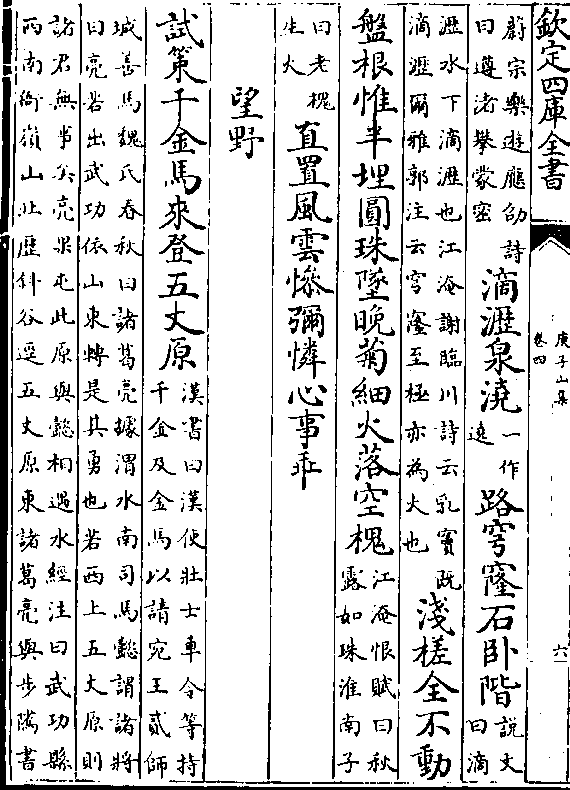 欽定四庫全書
庚子山集
卷四
六
蔚宗樂遊應詔詩
曰遵渚攀蒙密
滴瀝泉澆
一作
遶
路穹窿石卧階
説文
曰滴
瀝水下滴瀝也江淹謝臨川詩云乳竇既
滴瀝爾雅郭注云穹窿至極亦為大也
淺槎全不動
盤根惟半埋圓珠墜晚菊細火落空槐
江淹恨賦曰秋
露如珠淮南子
曰老槐
生火
直置風雲慘彌憐心事乖
望野
試策千金馬來登五丈原
漢書曰漢使壯士車令等持
千金及金馬以請宛王貳師
城善馬魏氏春秋曰諸葛亮據渭水南司馬懿謂諸將
曰亮若出武功依山東轉是其勇也若西上五丈原則
諸君無事矣亮果屯此原與懿相遇水經注曰武功縣
西南衙嶺山北歷斜谷逕五丈原東諸葛亮與步隲書